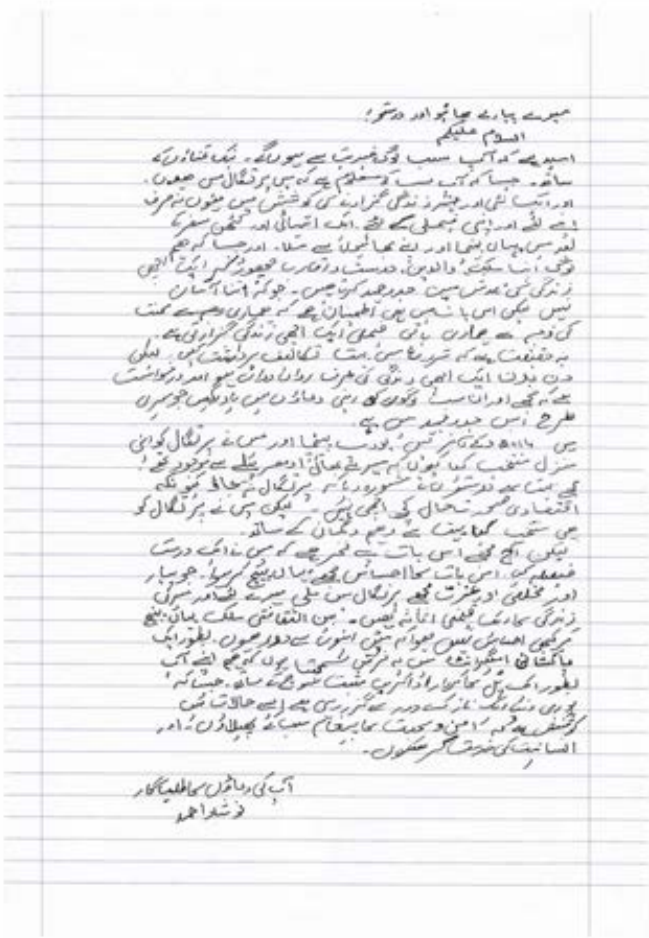 میرے پیارے بھائیو اور دوستو!
السلام علیکم
امید ہے کہ آپ سب لوگ خیریت سے ہوں گے۔ نیک تمناؤں کے
ساتھ۔ جیسا کہ آپ سب کو معلوم ہے کہ میں پرتگال میں ہوں۔
اور ایک نئی اور بہتر زندگی گزارنے کی کوشش میں ہوں نہ صرف
اپنے لئے اور اپنی فیملی کے لئے۔ ایک انتہائی اور کٹھن سفر کے
بعد میں یہاں پہنچا اور اپنے بھائیوں سے ملا۔ اور جیسا کہ ہم
لوگ اپنا والدین، دوست و اقارب چھوڑ کر ایک اچھی
زندگی کی تلاش میں جدوجہد کرتے ہیں۔ جو کہ اتنا آسان
نہیں لیکن اس بات میں ہی اطمینان ہے کہ ہماری محنت
کی وجہ سے ہماری باقی فیملی ایک اچھی زندگی گزارتی ہے۔
یہ حقیقت ہے کہ شروع میں بہت تکالیف برداشت کیں۔ لیکن
دن بدن ایک اچھی زندگی کی طرف رواں دواں ہیں اور درخواست
ہے کہ مجھے اور ان سب لوگوں کو اپنی دعاؤں میں یاد رکھیں جو میری
طرح اس جدوجہد میں ہیں۔
میں یورپ پہنچا اور میں نے پرتگال کو اپنی
منزل منتخب کیا کیونکہ میرے بھائی ادھر پہلے سے موجود تھے۔
مجھے بہت سے دوستوں نے مشورہ دیا کہ پرتگال نہ جاؤ کیونکہ
اقتصادی صورتحال کچھ اچھی نہیں۔ لیکن میں نے پرتگال کو
ہی منتخب کیا وہم و گمان کے ساتھ۔
لیکن آج مجھے اس بات پہ فخر ہے کہ میں نے ایک درست
فیصلہ کیا۔ اس بات کا احساس مجھے یہاں پہنچ کر ہوا۔ جو پیار
اور مخلصی اور عزت مجھے پرتگال میں ملی میرے لئے اور میری
زندگی کا ایک قیمتی اثاثہ ہیں۔ بین الثقافتی ملک یہاں پہنچ
کر کبھی احساس نہیں ہوا کہ میں اپنوں سے دور ہوں۔ بطور ایک
پاکستانی میں یہ فرض سمجھتا ہوں کہ ہم اپنے آپ
بطور ایک پل کا کردار ادا کریں مثبت سوچ کے ساتھ۔ جیسا کہ
پوری دنیا ایک نازک دور سے گزر رہی ہے ایسے حالات میں
کوشش ہے کہ امن و محبت کا پیغام پھیلاؤں اور
انسانیت کی خدمت کر سکوں۔
آپ کی دعاؤں کا طلبگار
احمد